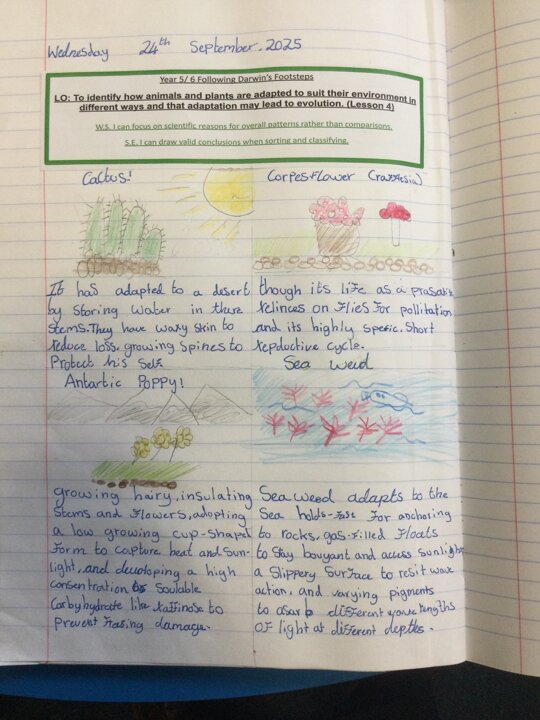 Wednesday 24th September. 2025
Year 5/ 6 Following Darwin's Footsteps
LO: To identify how animals and plants are adapted to suit their environment in
different ways and that adaptation may lead to evolution. (Lesson 4)
W.S. I can focus on scientific reasons for overall patterns rather than comparisons.
S.E. I can draw valid conclusions when sorting and classifying.
Cactus!
It has adapted to a desert
by storing water in there
stems. They have waxy skin to
reduce loss. growing spines to
Protect his self
Corpes flower (raffiesia)
though its life as a prasatic
relinces on flies for pollitation
and its highly specic. Short
repductive cycle.
Antartic Poppy!
growing hairy, insulating
stems and flowers, adopting
a low growing cup-shaped
form to capture heat and sun-
light, and devoloping a high
consentration of Soulable
Carbyhydrate like raffinose to
prevent freasing damage.
Sea weed
Sea weed adapts to the
Sea holds-fast for anchoring
to rocks, gas-filled floats
to stay bouyant and access sunlight
a slippery surface to resit wave
action, and varying pigments
to asarb different wave lengths
of light at different depths.